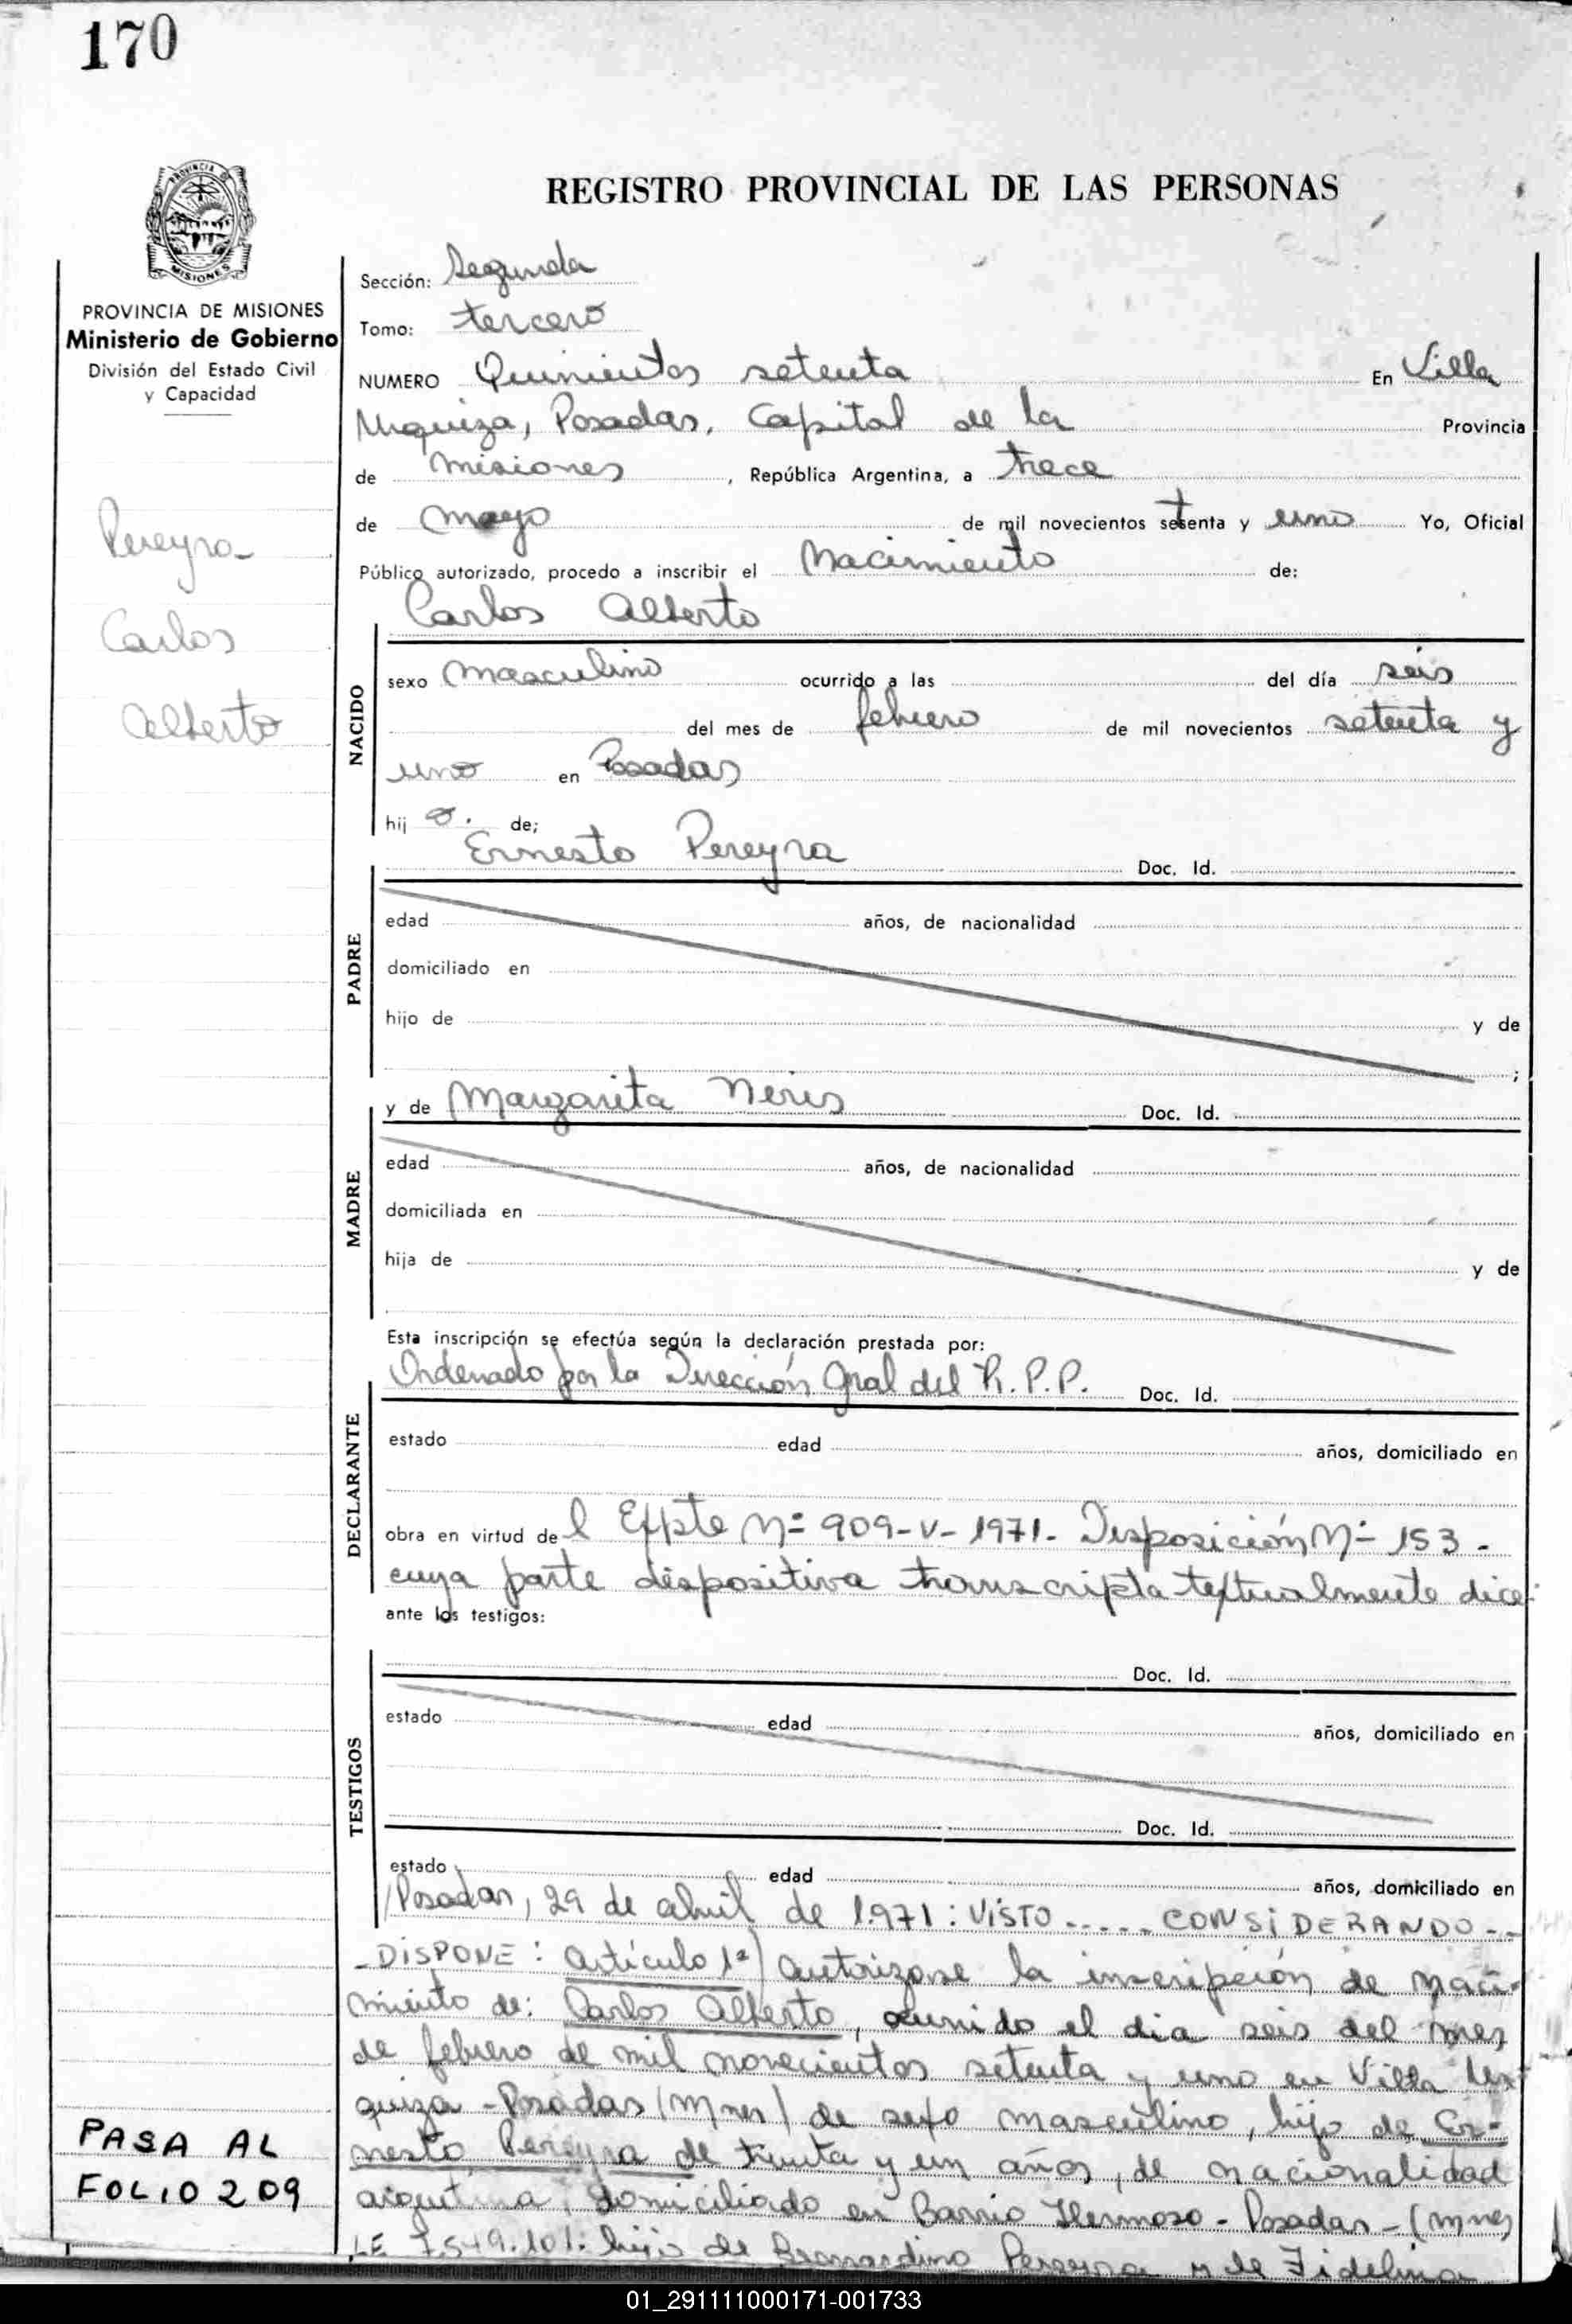 170
PROVINCIA DE
MISIONES
REGISTRO PROVINCIAL DE LAS PERSONAS
PROVINCIA DE MISIONES
Ministerio de Gobierno
División del Estado Civil
y Capacidad
Pereyra
Carlos
Alberto
Sección: Segunda
Tomo: tercero
NUMERO Quinientos setenta En Villa
Urquiza, Posadas, Capital de la Provincia
de Misiones, República Argentina, a trece
de mayo de mil novecientos setenta y uno Yo, Oficial
Público autorizado, procedo a inscribir el Nacimiento de:
Carlos Alberto
NACIDO
sexo masculino ocurrido a las del día seis
del mes de febrero de mil novecientos setenta y
uno en Posadas
hij o. de;
Ernesto Pereyra Doc. Id.
PADRE
edad años, de nacionalidad
domiciliado en
hijo de y de
;
y de Margarita Neris Doc. Id.
MADRE
edad años, de nacionalidad
domiciliada en
hija de y de
Esta inscripción se efectúa según la declaración prestada por:
Ordenado por la Dirección Gral del R.P.P. Doc. Id.
DECLARANTE
estado edad años, domiciliado en
obra en virtud del Expte Nº 909-V-1971- Disposición Nº 153-
cuya parte dispositiva transcripta textualmente dice:
ante los testigos:
Doc. Id.
TESTIGOS
estado edad años, domiciliado en
Doc. Id.
estado edad años, domiciliado en
Posadas, 29 de abril de 1971: VISTO ..... CONSIDERANDO --
-DISPONE: Artículo 1º) Autorízase la inscripción de naci-
miento de: Carlos Alberto, ocurrido el dia seis del mes
de febrero de mil novecientos setenta y uno en Villa Ur-
quiza - Posadas (Mnes) de sexo masculino, hijo de Er-
nesto Pereyra de treinta y un años, de nacionalidad
argentina, domiciliado en Barrio Hermoso - Posadas - (Mnes)
LE 7.549.101: hijo de Bernardino Pereyra y de Fidelina
PASA AL
FOLIO 209
01_291111000171-001733